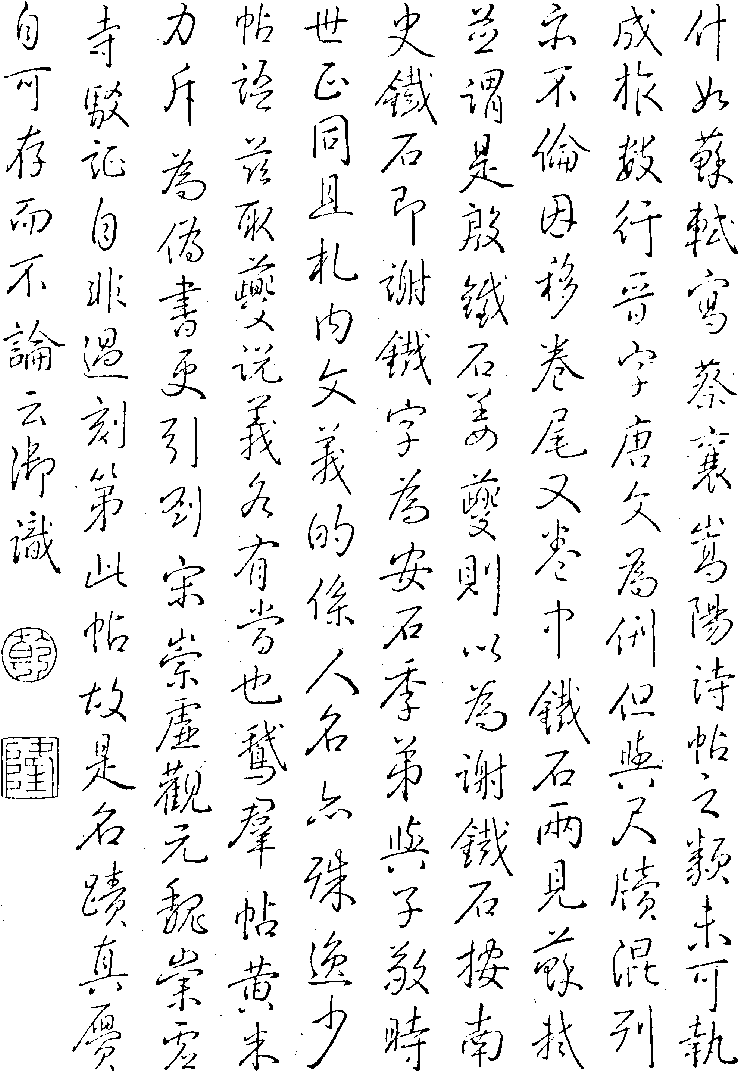 什如蘇軾寫蔡襄嵩陽詩帖之類未可執
成根數行晉字唐文為例但與尺牘混列
亦不倫因移卷尾又卷中鐵石兩見蘇軾
並謂是殷鐵石姜夔則以為謝鐵石按南
史鐵石即謝鐵字為安石季弟與子敬時
世正同且札內文義的係人名亦殊逸少
帖語茲取夔說義各有當也鵝羣帖黃米
力斥為偽書更引到宋崇虛觀元魏崇虛
寺駁証自非過刻第此帖故是名蹟真贗
自可存而不論云御識
乾
隆